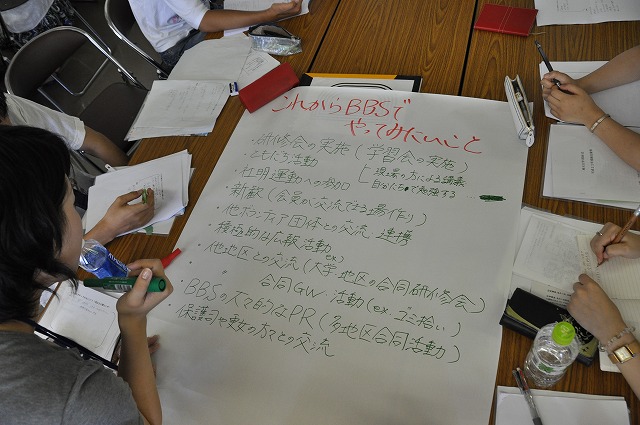 これからBBSで
やってみたいこと
・研修会の実施(学習会の実施)
現場の方による講義
自分たちで勉強する…
・ともだち活動
・社明運動への参加
・新歓(会員が交流できる場作り)
・他ボランティア団体との交流・連携
・積極的な広報活動
・他地区との交流(ex.大学地区の合同研修会)
〃 合同GW・活動(ex.ゴミ拾い)
・BBSの大々的なPR(多地区合同活動)
・保護司や更女の方々との交流